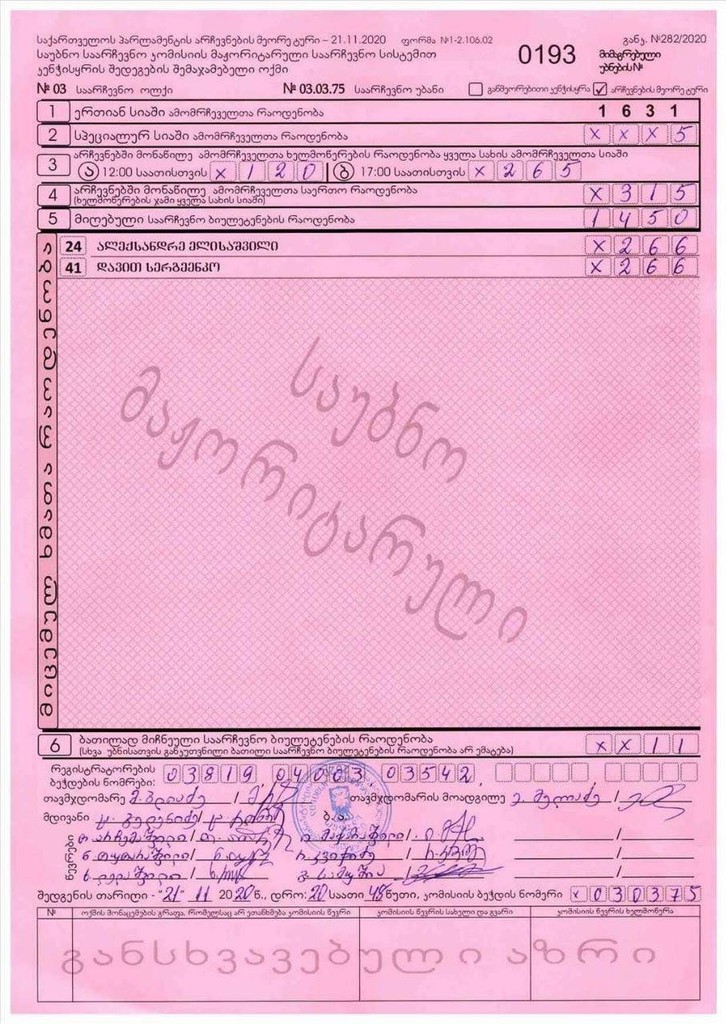 საქართველოს პარლამენტის არჩევნების მეორე ტური – 21.11.2020 ფორმა №1-2.106.02 განკ. №282/2020
საუბნო საარჩევნო კომისიის მაჟორიტარული საარჩევნო სისტემით 0193 მიმაგრებული
კენჭისყრის შედეგების შემაჯამებელი ოქმი უბნების№
№ 03 საარჩევნო ოლქი № 03.03.75 საარჩევნო უბანი განმეორებითი კენჭისყრა ✓ არჩევნების მეორე ტური
1 ერთიან სიაში ამომრჩეველთა რაოდენობა 1 6 3 1
2 სპეციალურ სიაში ამომრჩეველთა რაოდენობა X X X 5
3 არჩევნებში მონაწილე ამომრჩეველთა ხელმოწერების რაოდენობა ყველა სახის ამომრჩეველთა სიაში
ა 12:00 საათისთვის X 1 2 0 ბ 17:00 საათისთვის X 2 6 5
4 არჩევნებში მონაწილე ამომრჩეველთა საერთო რაოდენობა X 3 1 5
(ხელმოწერების ჯამი ყველა სახის სიაში)
5 მიღებული საარჩევნო ბიულეტენების რაოდენობა 1 4 5 0
მიცემულ ხმათა რაოდენობა
24 ალექსანდრე ელისაშვილი X 2 6 6
41 დავით სერგეენკო X 2 6 6
საუბნო
მაჟორიტარული
6 ბათილად მიჩნეული საარჩევნო ბიულეტენების რაოდენობა X X 1 1
(სხვა უბნისათვის განკუთვნილი ბათილი საარჩევნო ბიულეტენების რაოდენობა არ ემატება)
რეგისტრატორების
ბეჭდების ნომრები: 03819 04003 03542
თავმჯდომარე თავმჯდომარის მოადგილე
მდივანი ბ.ა.
წევრები
შედგენის თარიღი - 21 - 11 2020 წ., დრო: 20 საათი 48 წუთი, კომისიის ბეჭდის ნომერი X 030375
№ ოქმის მონაცემების გრაფა, რომელსაც არ ეთანხმება კომისიის წევრი კომისიის წევრის სახელი და გვარი კომისიის წევრის ხელმოწერა
განსხვავებული აზრი